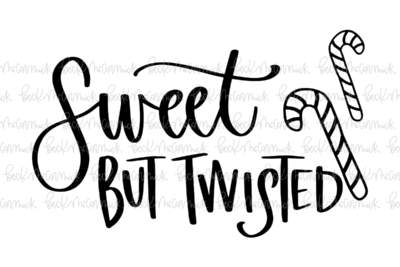 Sweet
BUT TWISTED